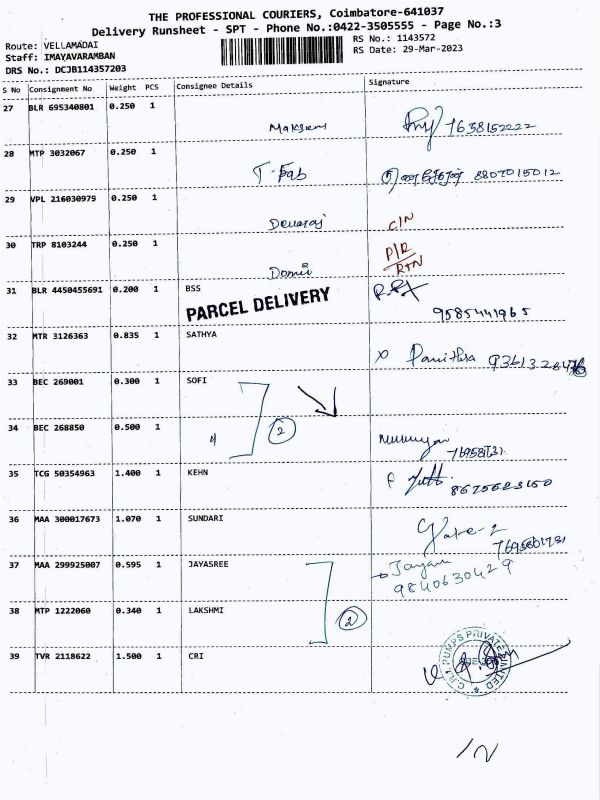 THE PROFESSIONAL COURIERS, Coimbatore-641037
Delivery Runsheet - SPT - Phone No.:0422-3505555 - Page No.:3
Route: VELLAMADAI RS No.: 1143572
Staff: IMAYAVARAMBAN RS Date: 29-Mar-2023
DRS No.: DCJB114357203
S No Consignment No Weight PCS Consignee Details Signature
27 BLR 695340801 0.250 1
7638152222
28 MTP 3032067 0.250 1
8807015012
29 VPL 216030979 0.250 1
Devaraj C/N
30 TRP 8103244 0.250 1
P/R
RTN
31 BLR 4450455691 0.200 1 BSS
PARCEL DELIVERY
9585441965
32 MTR 3126363 0.835 1 SATHYA
33 BEC 269001 0.300 1 SOFI
34 BEC 268850 0.500 1 " 2
Murugan
35 TCG 50354963 1.400 1 KEHN
8675623150
36 MAA 300017673 1.070 1 SUNDARI
37 MAA 299925007 0.595 1 JAYASREE
9840630429
38 MTP 1222060 0.340 1 LAKSHMI 2
39 TVR 2118622 1.500 1 CRI
C.R.I. PUMPS PRIVATE LIMITED